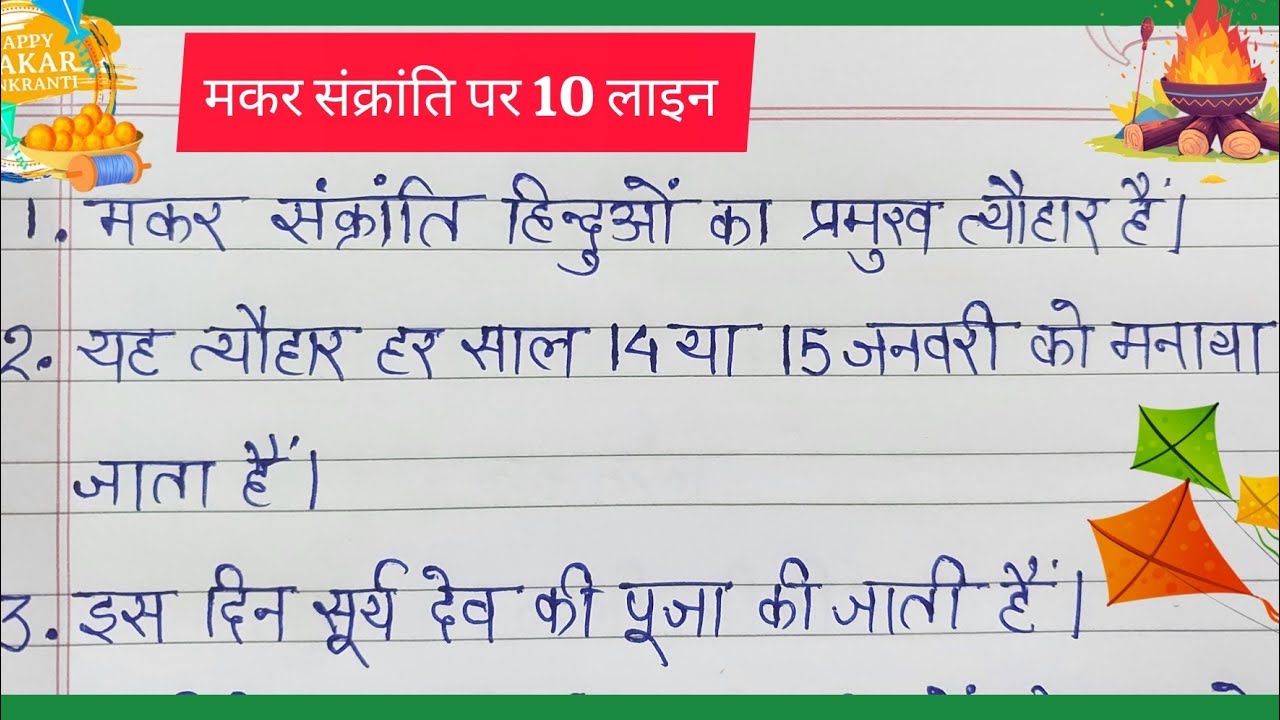 APPY
AKAR
NKRANTI
मकर संक्रांति पर 10 लाइन
1. मकर संक्रांति हिन्दुओं का प्रमुख त्यौहार हैं।
2. यह त्यौहार हर साल 14 या 15 जनवरी को मनाया
जाता हैं।
3. इस दिन सूर्य देव की पूजा की जाती हैं।